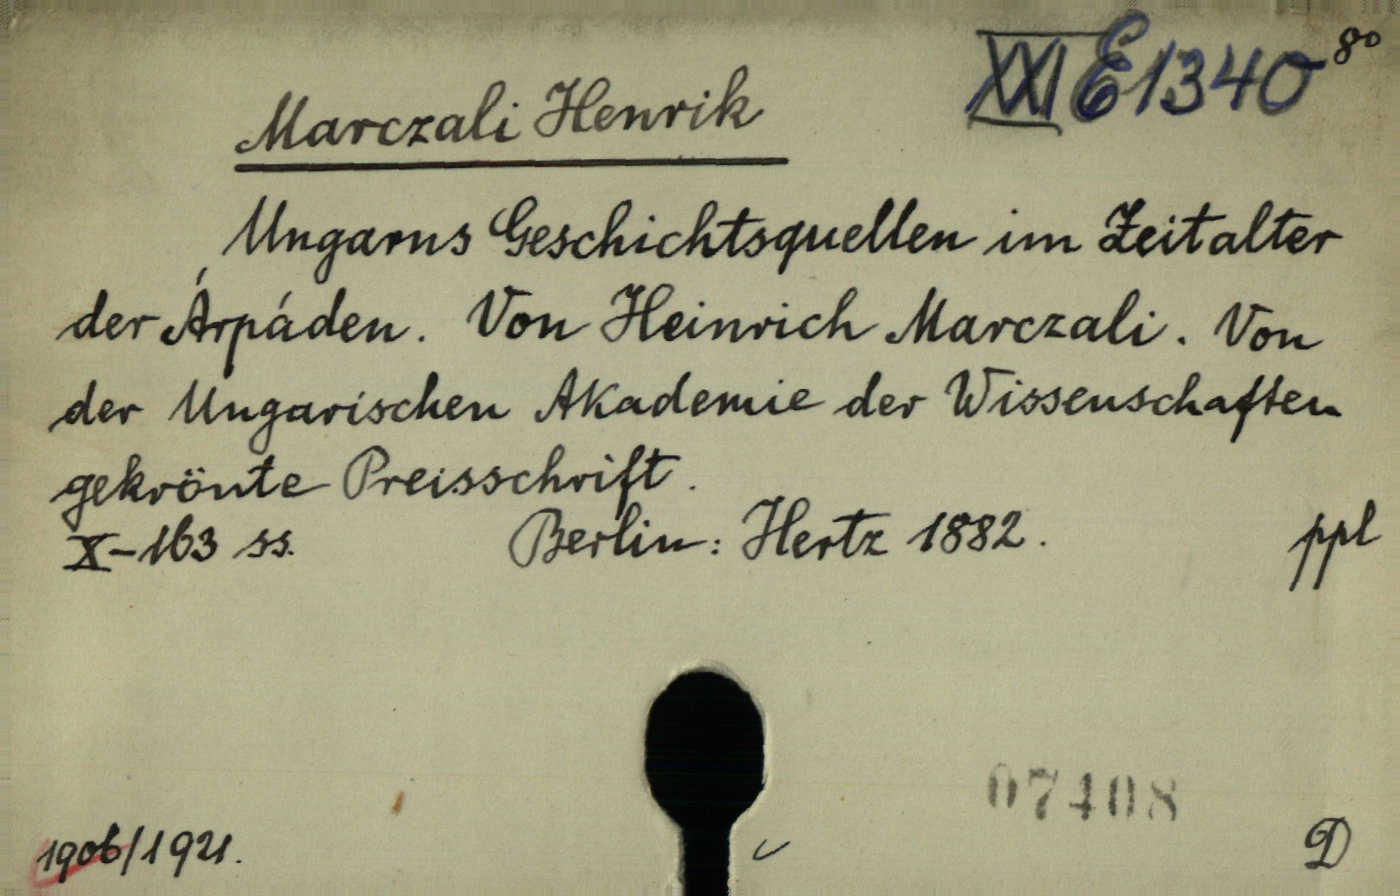 XXI E 1340 8º
Marczali Henrik
Ungarns Geschichtsquellen im Zeitalter
der Árpáden. Von Heinrich Marczali. Von
der Ungarischen Akademie der Wissenschaften
gekrönte Preisschrift.
X-163 ss. Berlin: Hertz 1882. ppl
07408
1906/1921. D